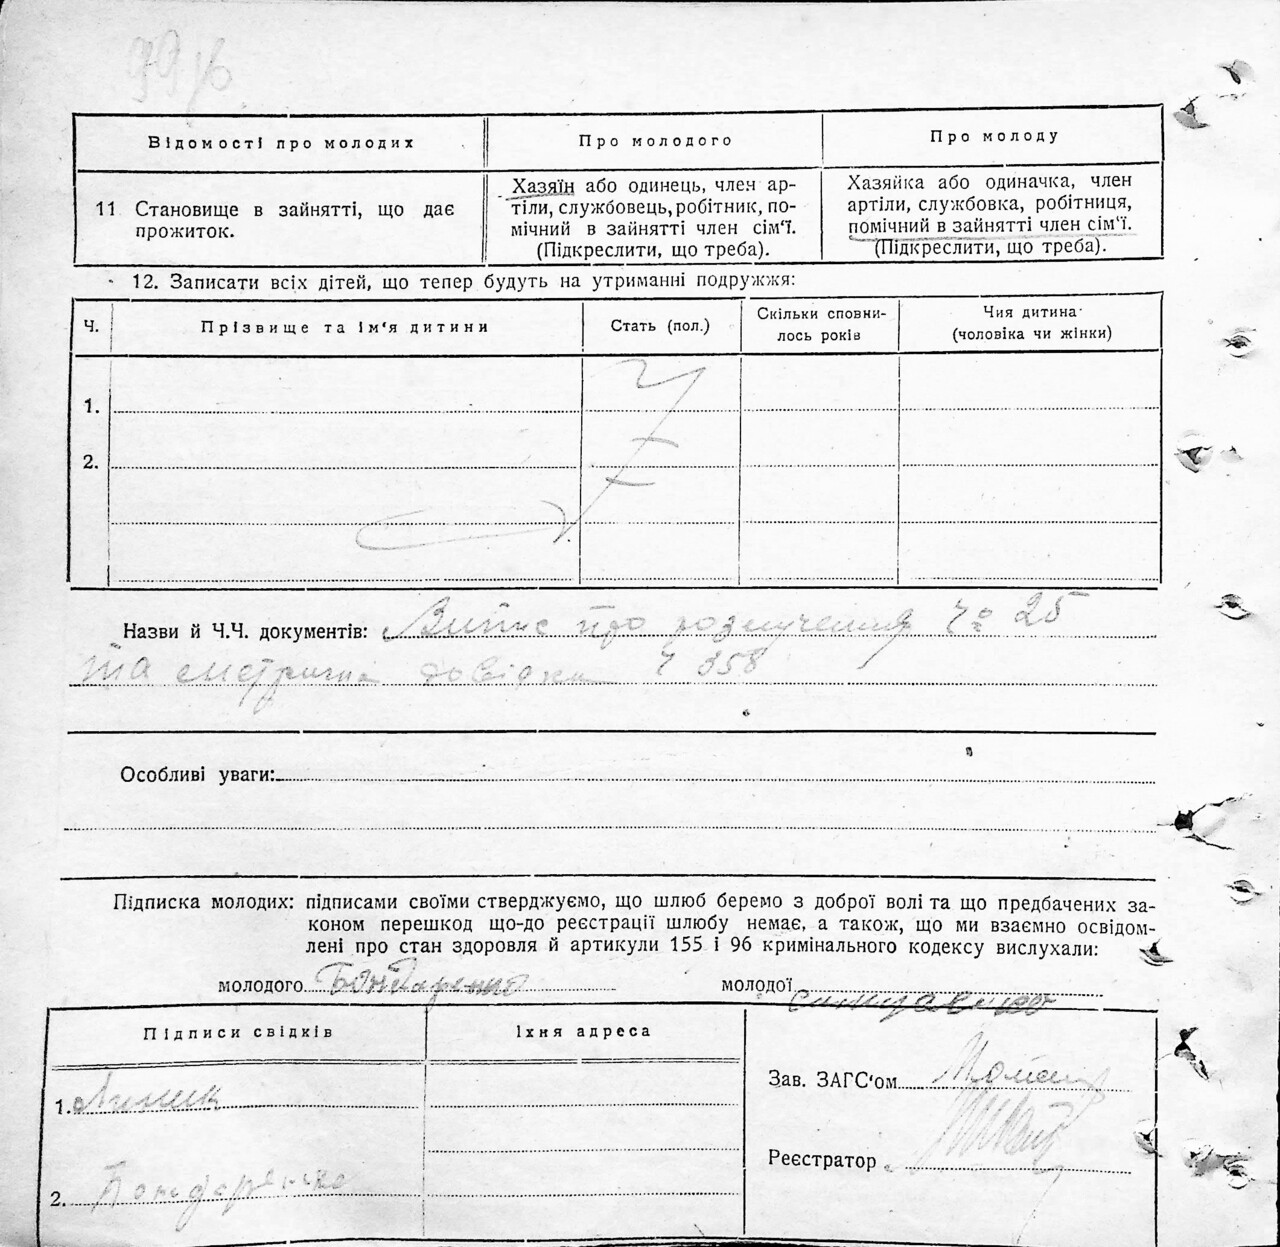 Відомості про молодих
Про молодого
Про молоду
11 Становище в зайнятті, що дає
прожиток.
Хазяїн або одинець, член ар-
тіли, службовець, робітник, по-
мічний в зайнятті член сім'ї.
(Підкреслити, що треба).
Хазяйка або одиначка, член
артіли, службовка, робітниця,
помічний в зайнятті член сім'ї.
(Підкреслити, що треба).
12. Записати всіх дітей, що тепер будуть на утриманні подружжя:
Ч.
Прізвище та ім'я дитини
Стать (пол.)
Скільки сповни-
лось років
Чия дитина
(чоловіка чи жінки)
1.
2.
Назви й Ч.Ч. документів: Витяг про розлучення Ч 25
та метрична довідка Ч 358
Особливі уваги:
Підписка молодих: підписами своїми стверджуємо, що шлюб беремо з доброї волі та що предбачених за-
коном перешкод що-до реєстрації шлюбу немає, а також, що ми взаємно освідом-
лені про стан здоровля й артикули 155 і 96 кримінального кодексу вислухали:
молодого Бондаренко
молодої
Підписи свідків
Їхня адреса
1. Линник
2. Бондаренко
Зав. ЗАГС'ом
Реєстратор